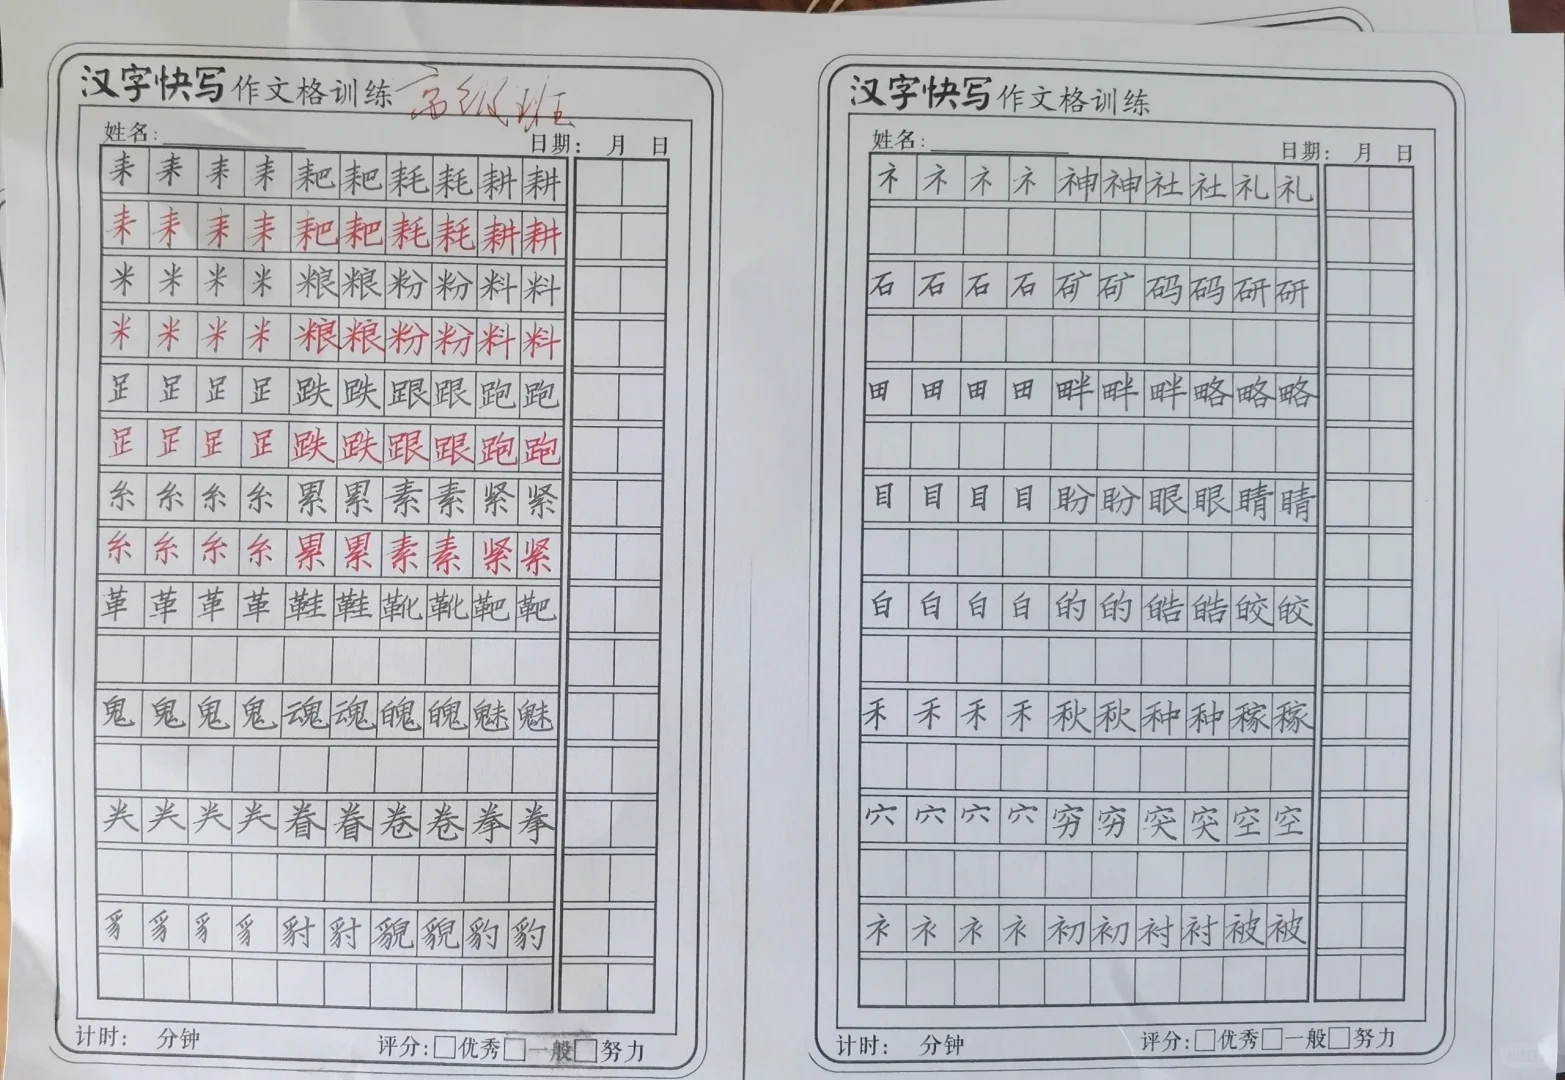 汉字快写作文格训练 高级班
姓名: 日期: 月 日
耒耒耒耒耙耙耗耗耕耕
耒耒耒耒耙耙耗耗耕耕
米米米米粮粮粉粉料料
米米米米粮粮粉粉料料
𧾷𧾷𧾷𧾷跌跌跟跟跑跑
𧾷𧾷𧾷𧾷跌跌跟跟跑跑
糸糸糸糸累累素素紧紧
糸糸糸糸累累素素紧紧
革革革革鞋鞋靴靴靶靶
鬼鬼鬼鬼魂魂魄魄魅魅
龹龹龹龹眷眷卷卷拳拳
豸豸豸豸豺豺貌貌豹豹
计时: 分钟 评分:□优秀□一般□努力
汉字快写作文格训练
姓名: 日期: 月 日
礻礻礻礻神神社社礼礼
石石石石矿矿码码研研
田田田田畔畔畔略略略
目目目目盼盼眼眼睛睛
白白白白的的皓皓皎皎
禾禾禾禾秋秋种种稼稼
穴穴穴穴穷穷突突空空
衤衤衤衤初初衬衬被被
计时: 分钟 评分:□优秀□一般□努力